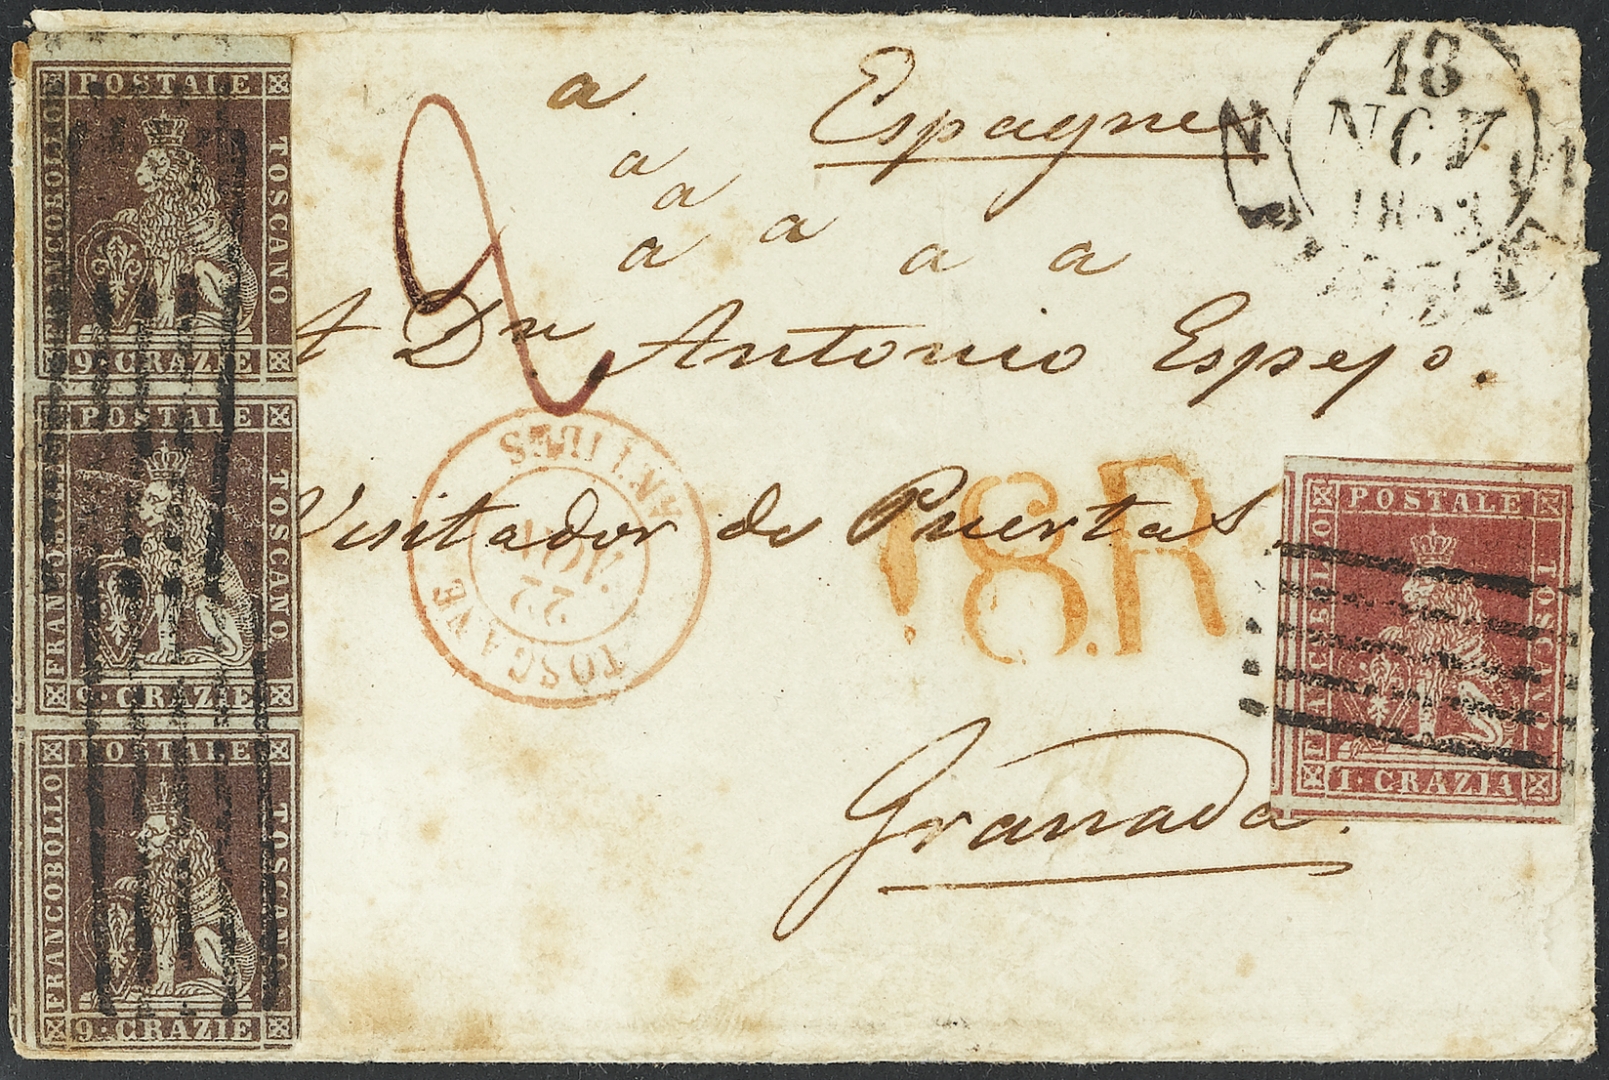 a Espagne
a
a
a a a a
A Dn Antonio Espejo.
Visitador de Puertas
Granada.
18
NOV
1853
TOSCANE
22
NOV.
ANTIBES
18.R
POSTALE
FRANCOBOLLO
TOSCANO
9·CRAZIE
POSTALE
FRANCOBOLLO
TOSCANO
9·CRAZIE
POSTALE
FRANCOBOLLO
TOSCANO
9·CRAZIE
POSTALE
TOSCANO
1·CRAZIA